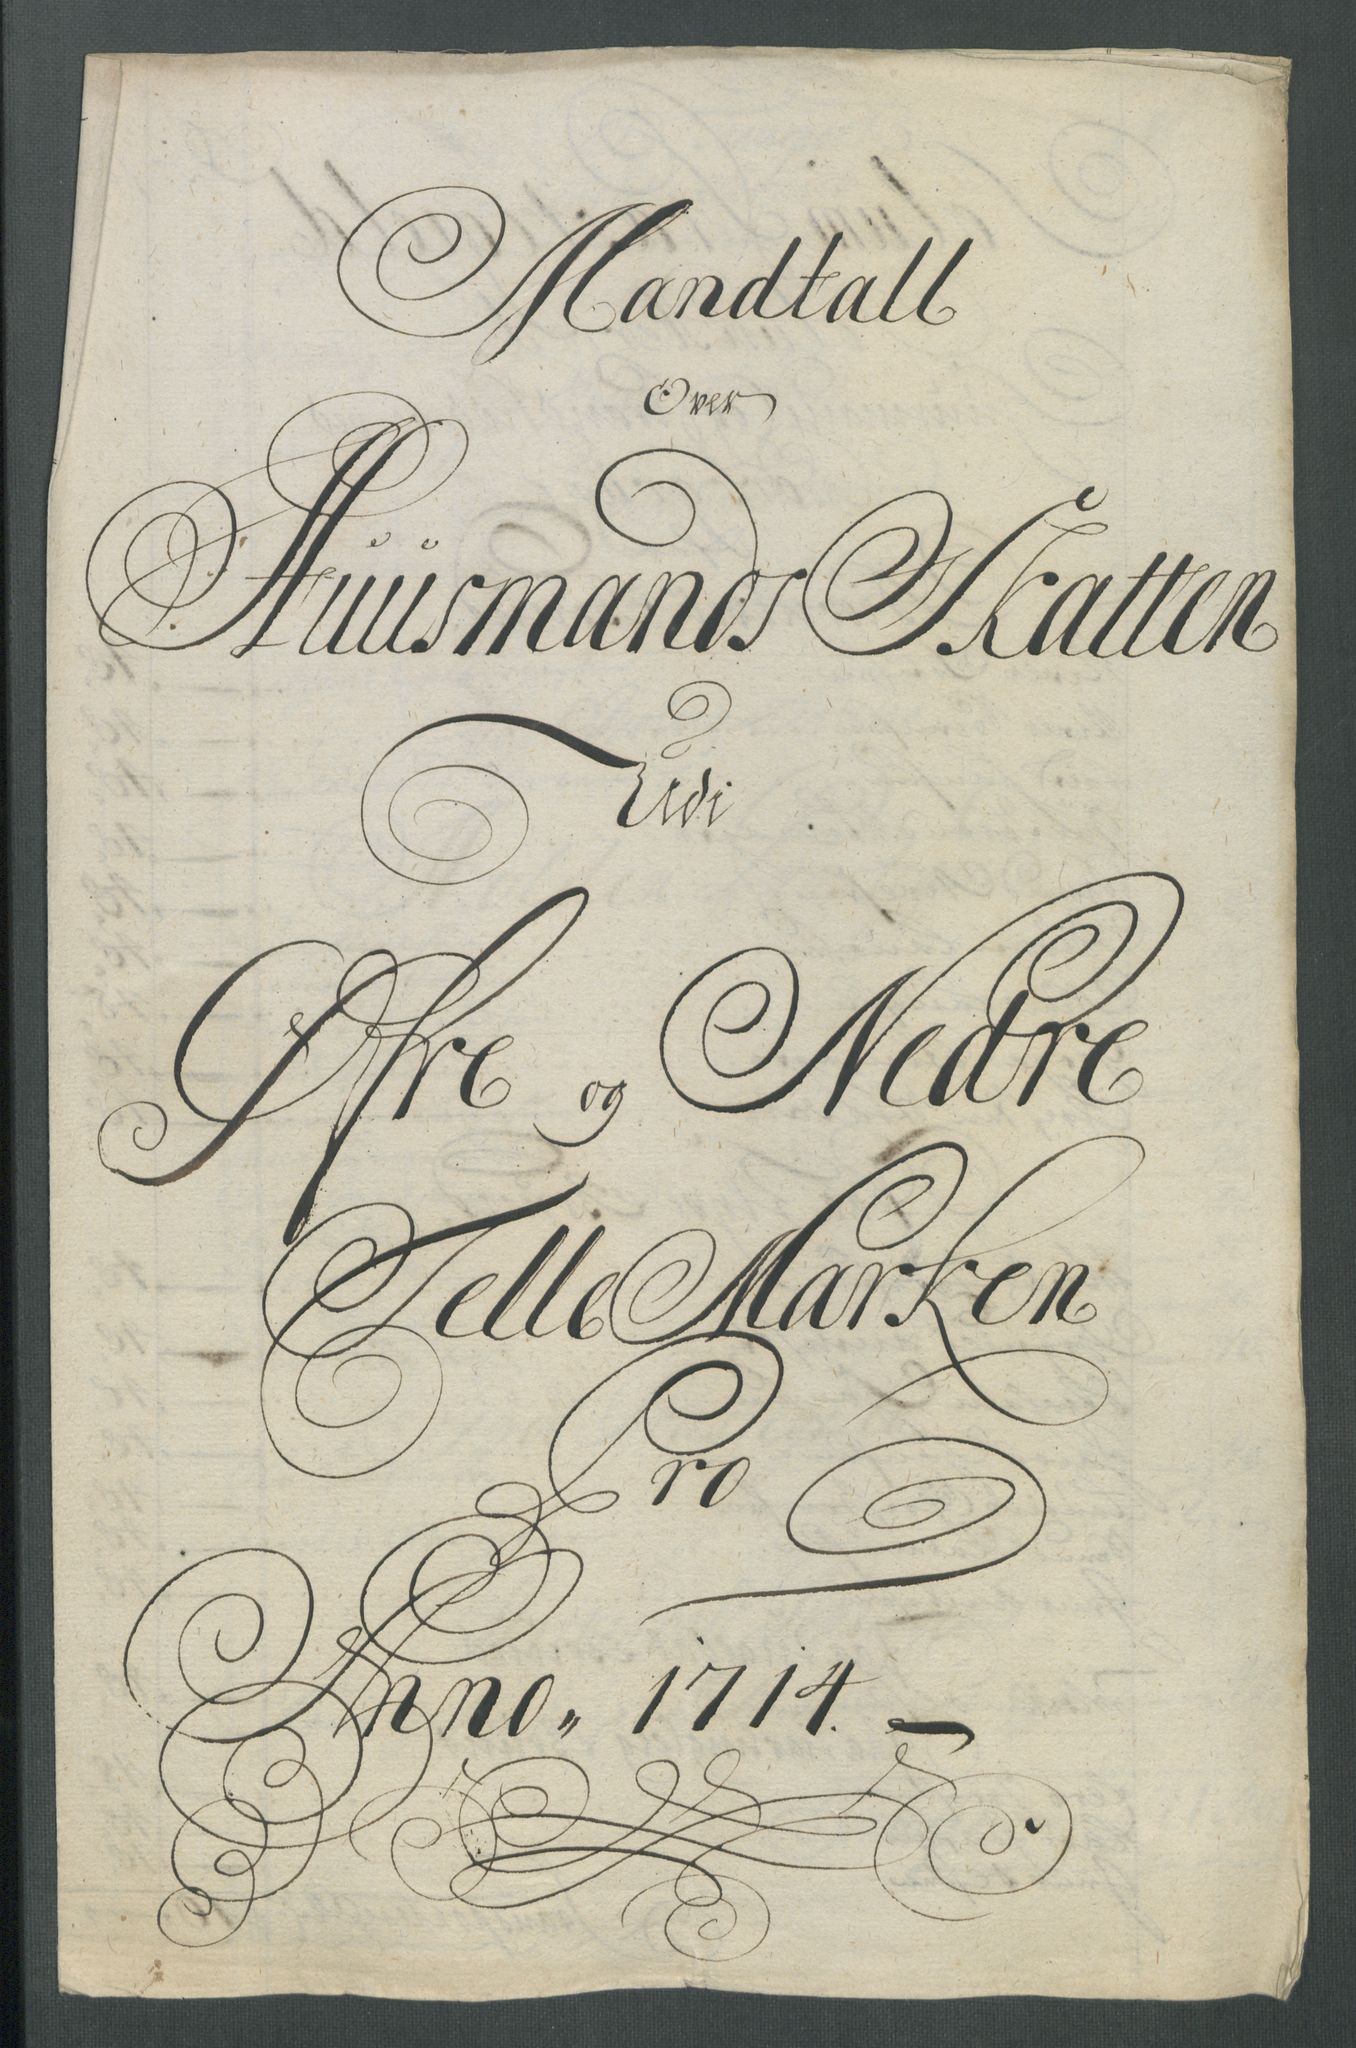 Mandtall
Over
Huusmands Skatten
Udi
Øfre og Nedre
Telle Marken
Pro
Anno„ 1714.